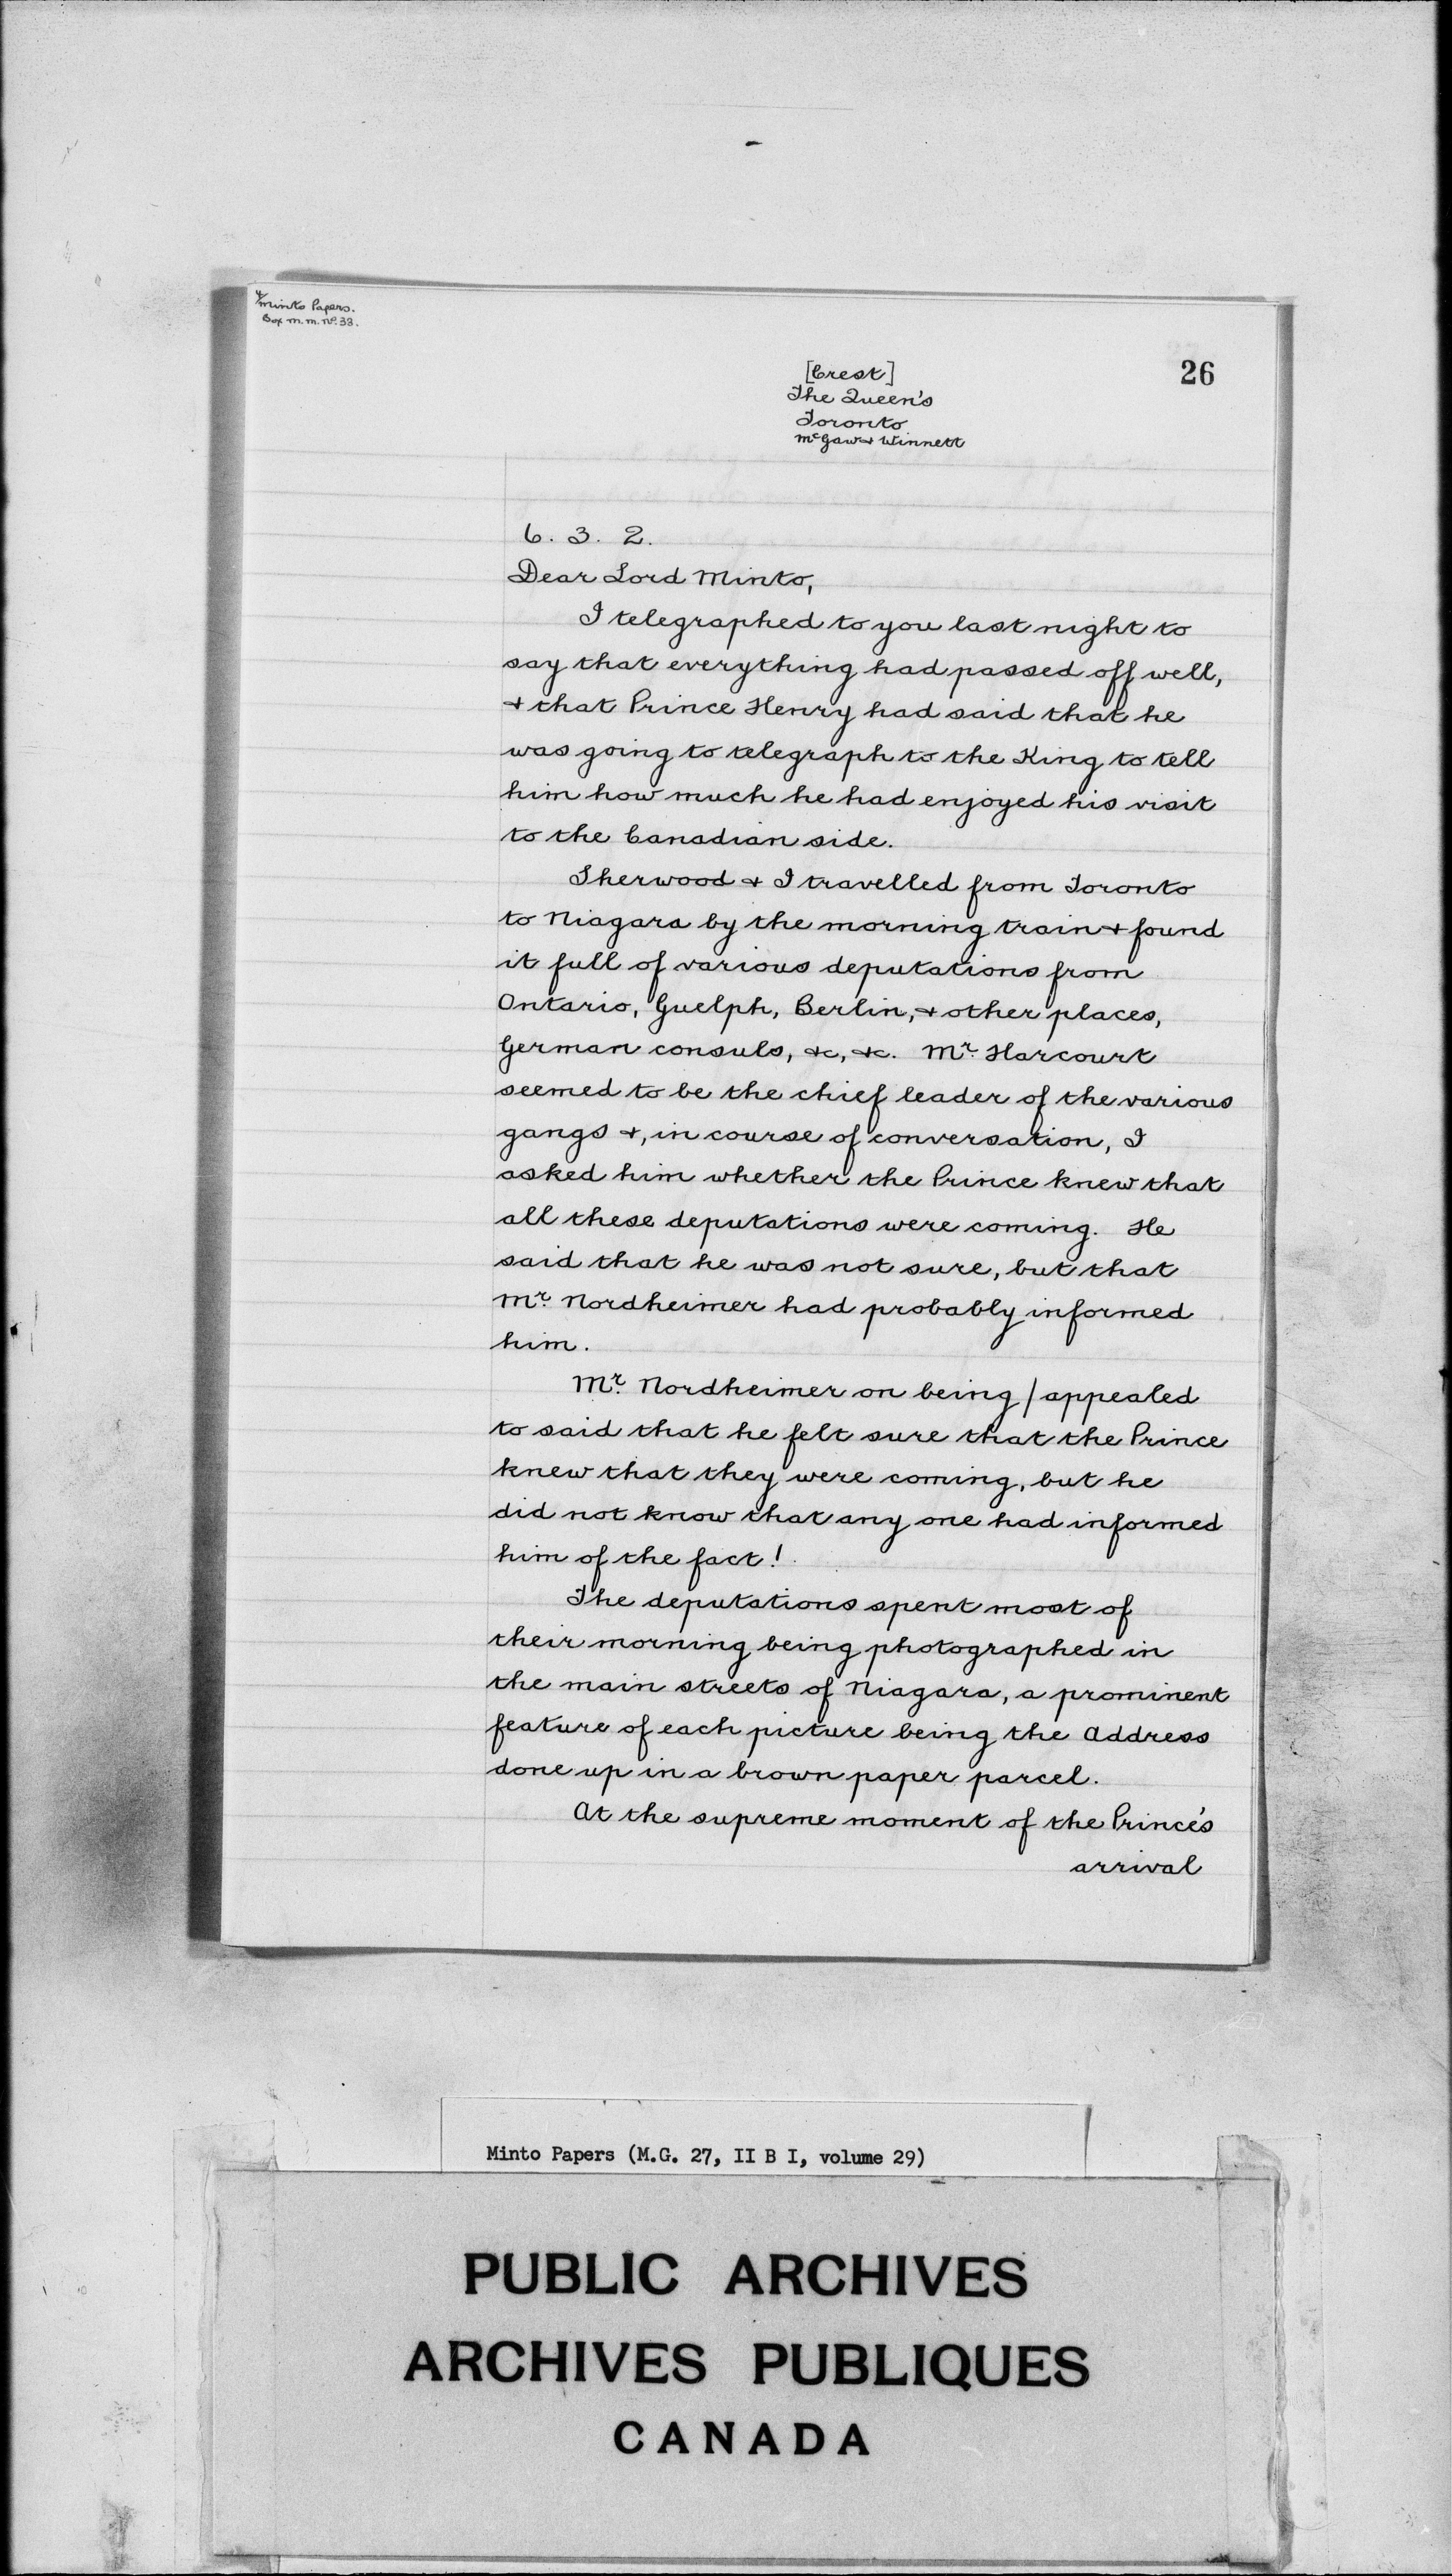 4/Minto Papers.
Box m.m. No. 33.
26
[Crest]
The Queen's
Toronto
McGaw & Winnett
6. 3. 2.
Dear Lord Minto,
I telegraphed to you last night to
say that everything had passed off well,
& that Prince Henry had said that he
was going to telegraph to the King to tell
him how much he had enjoyed his visit
to the Canadian side.
Sherwood & I travelled from Toronto
to Niagara by the morning train & found
it full of various deputations from
Ontario, Guelph, Berlin, & other places,
German consuls, &c, &c. Mr. Harcourt
seemed to be the chief leader of the various
gangs &, in course of conversation, I
asked him whether the Prince knew that
all these deputations were coming. He
said that he was not sure, but that
Mr. Nordheimer had probably informed
him.
Mr. Nordheimer on being / appealed
to said that he felt sure that the Prince
knew that they were coming, but he
did not know that any one had informed
him of the fact!
The deputations spent most of
their morning being photographed in
the main streets of Niagara, a prominent
feature of each picture being the Address
done up in a brown paper parcel.
At the supreme moment of the Prince's
arrival
Minto Papers (M.G. 27, II B I, volume 29)
PUBLIC ARCHIVES
ARCHIVES PUBLIQUES
CANADA